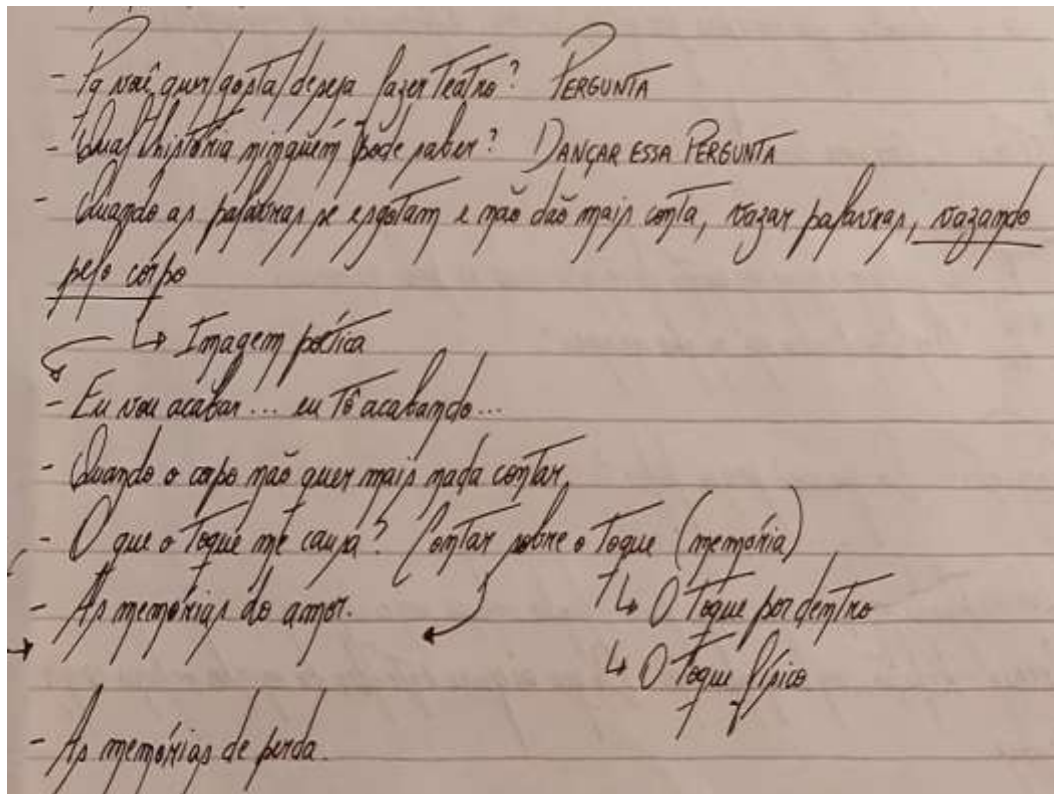 - Pq você quer/gosta/deseja fazer teatro? PERGUNTA
- Qual história ninguém pode saber? DANÇAR ESSA PERGUNTA
- Quando as palavras se esgotam e não dão mais conta, vazar palavras, vazando
pelo corpo
↳ Imagem poética
- Eu vou acabar... eu tô acabando...
- Quando o corpo não quer mais nada contar.
- O que o toque me causa? Contar sobre o toque (memória)
- As memórias do amor. ↳ O toque por dentro
↳ O toque físico
- As memórias de perda.